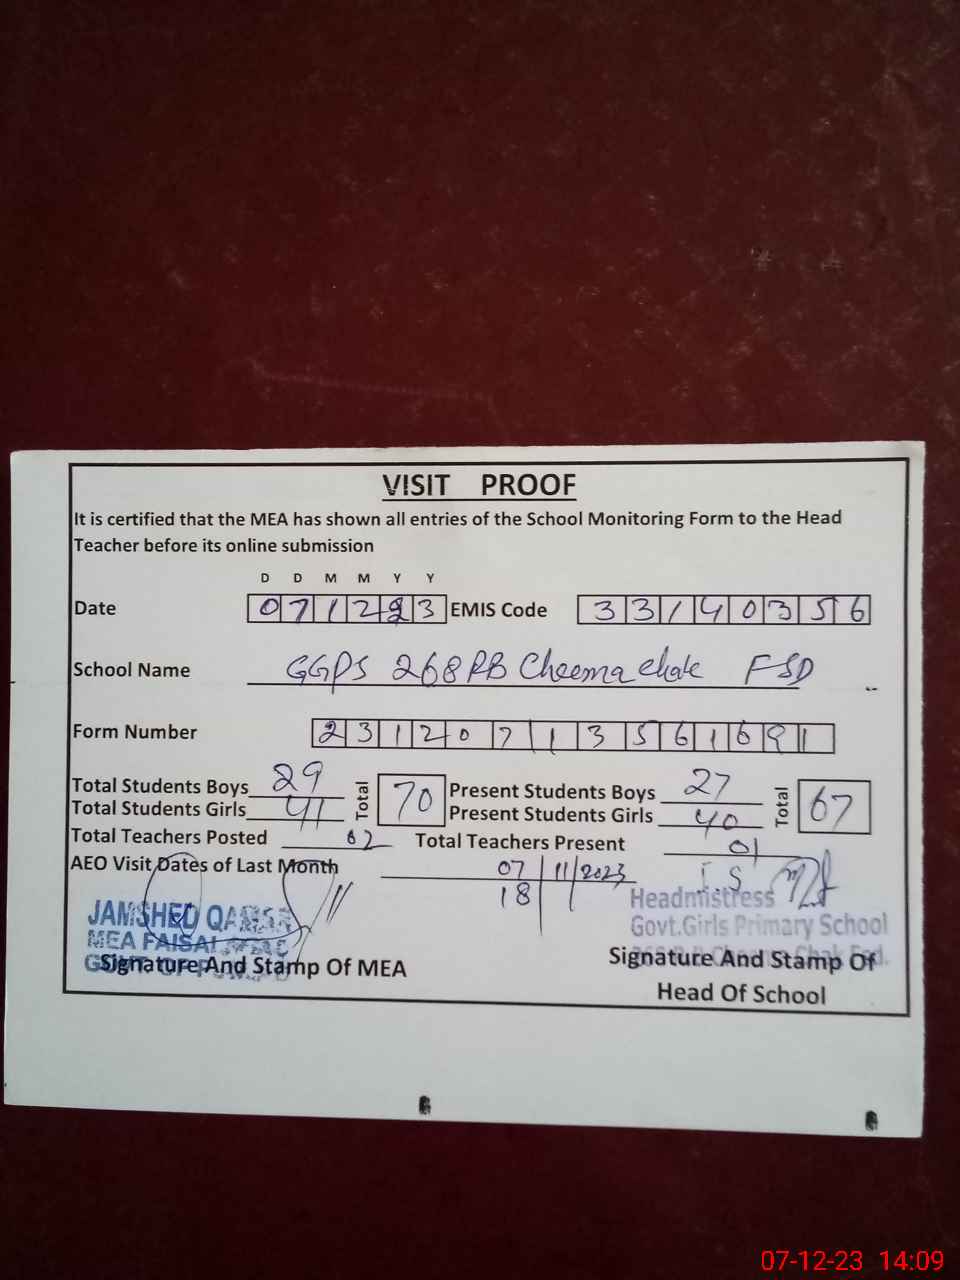 VISIT PROOF
It is certified that the MEA has shown all entries of the School Monitoring Form to the Head
Teacher before its online submission
D D M M Y Y
Date 0 7 1 2 2 3 EMIS Code 3 3 1 4 0 3 5 6
School Name GGPS 268 RB Cheema Chak FSD
Form Number 2 3 1 2 0 7 1 3 5 6 1 6 9 1
Total Students Boys 29 Total 70 Present Students Boys 27 Total 67
Total Students Girls 41 Present Students Girls 40
Total Teachers Posted 02 Total Teachers Present 01
AEO Visit Dates of Last Month 07 11 2023
18
JAMSHED
MEA FAISAL
Signature And Stamp Of MEA
Headmistress
Govt.Girls Primary School
Signature And Stamp Of
Head Of School
07-12-23 14:09